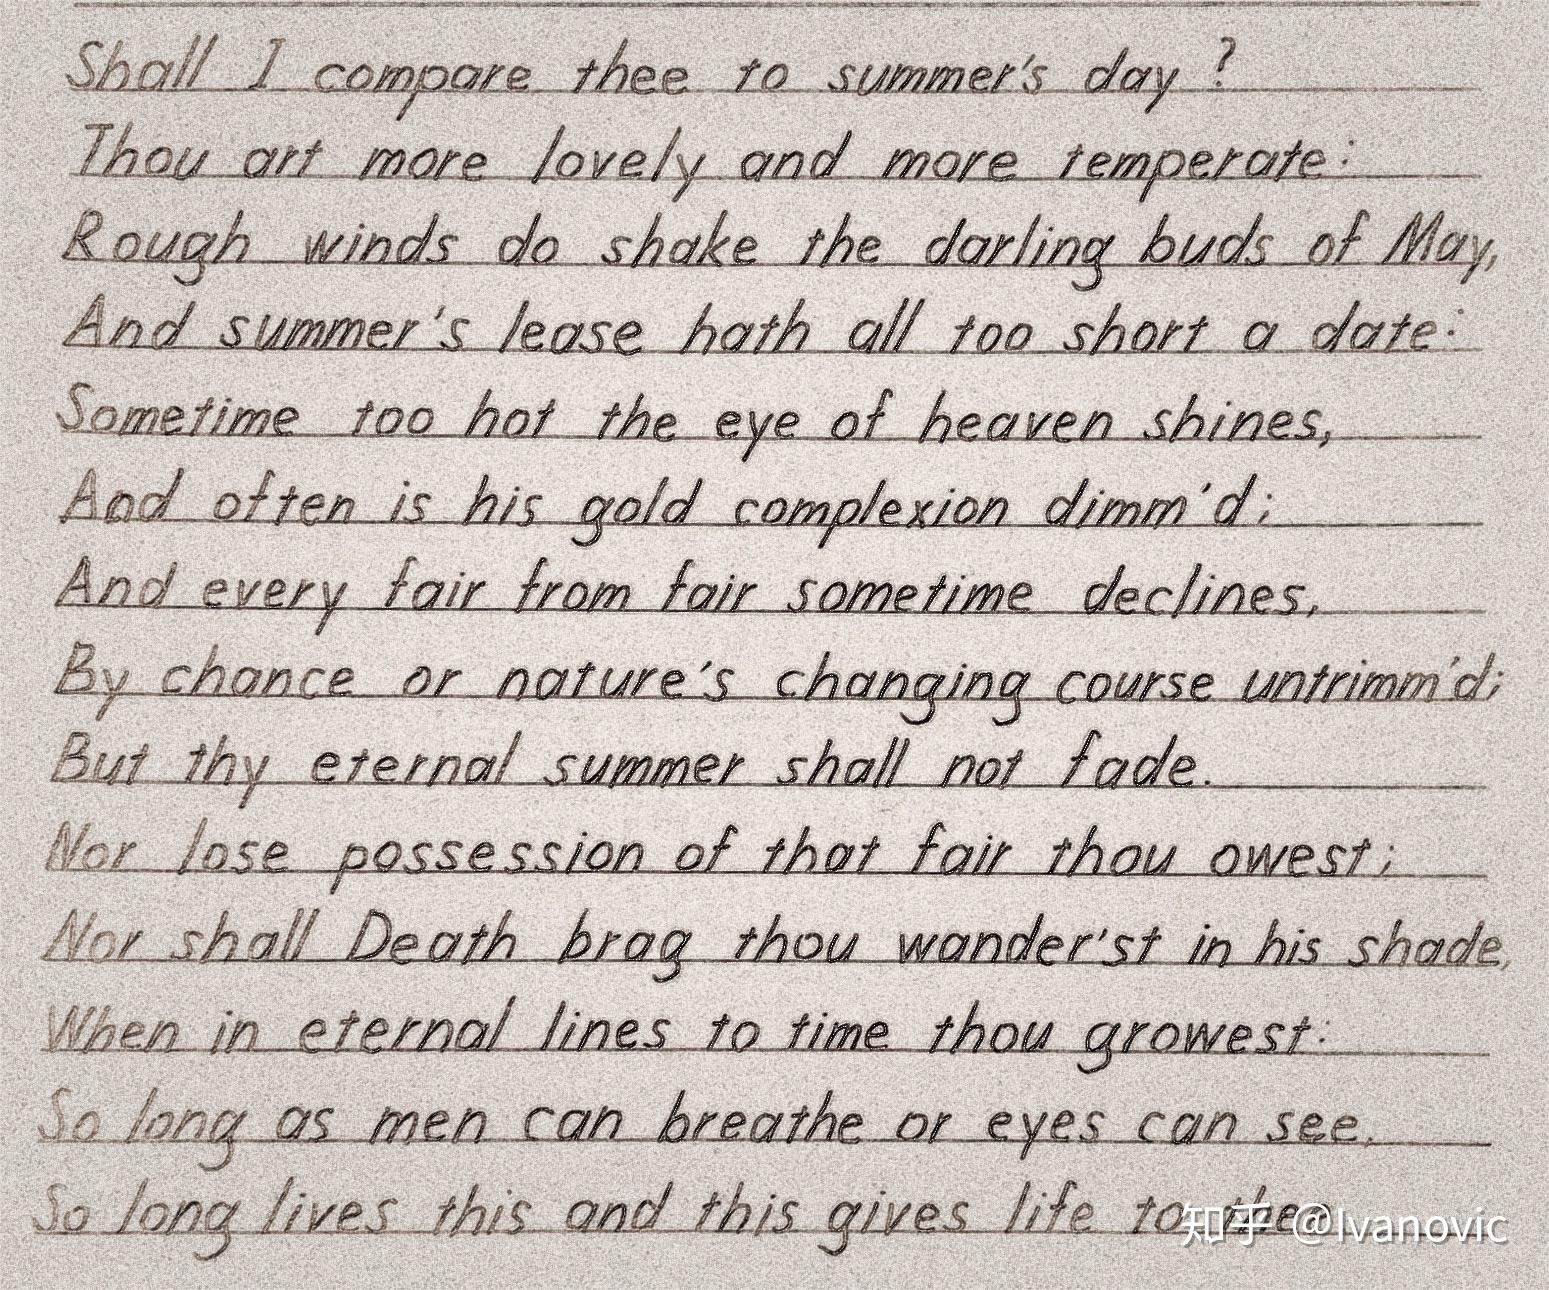 Shall I compare thee to summer's day ?
Thou art more lovely and more temperate:
Rough winds do shake the darling buds of May,
And summer's lease hath all too short a date:
Sometime too hot the eye of heaven shines,
And often is his gold complexion dimm'd;
And every fair from fair sometime declines,
By chance or nature's changing course untrimm'd;
But thy eternal summer shall not fade.
Nor lose possession of that fair thou owest;
Nor shall Death brag thou wander'st in his shade,
When in eternal lines to time thou growest:
So long as men can breathe or eyes can see.
So long lives this and this gives life to
知乎 @Ivanovic